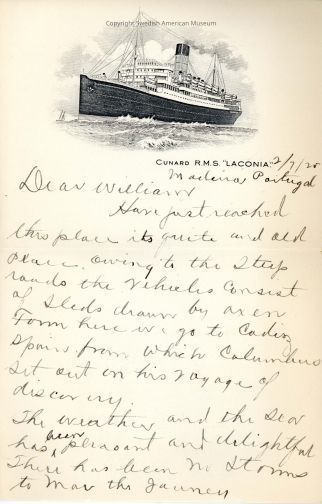 Copyright, Swedish American Museum
CUNARD R.M.S. "LACONIA."
2/7/25
Madeira Portugal
Dear William
Have just reached
this place its quite and old
place. owing to the steep
roads the vehicles consist
of sleds drawn by oxen
From here we go to Cadiz
Spain from which Columbus
set out on his voyage of
discovery.
The weather and the sea
has been pleasant and delightful
There has been no storms
to mar the journey